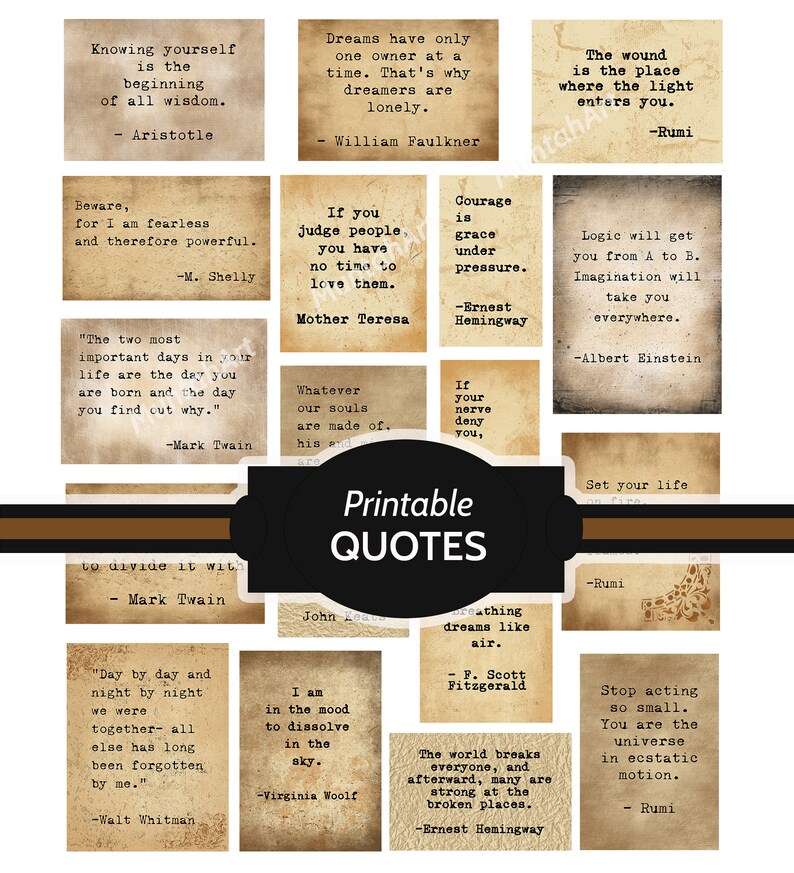 Knowing yourself
is the
beginning
of all wisdom.
- Aristotle
Dreams have only
one owner at a
time. That's why
dreamers are
lonely.
- William Faulkner
The wound
is the place
where the light
enters you.
-Rumi
Beware,
for I am fearless
and therefore powerful.
-M. Shelly
If you
judge people,
you have
no time to
love them.
Mother Teresa
Courage
is
grace
under
pressure.
-Ernest
Hemingway
Logic will get
you from A to B.
Imagination will
take you
everywhere.
-Albert Einstein
"The two most
important days in your
life are the day you
are born and the day
you find out why."
-Mark Twain
Whatever
our souls
are made of,
his and
are
If
your
nerve
deny
you,
Set your life
on fire.
-Rumi
Printable
QUOTES
to divide it with
- Mark Twain
John Keats
breathing
dreams like
air.
- F. Scott
Fitzgerald
"Day by day and
night by night
we were
together- all
else has long
been forgotten
by me."
-Walt Whitman
I am
in the mood
to dissolve
in the
sky.
-Virginia Woolf
The world breaks
everyone, and
afterward, many are
strong at the
broken places.
-Ernest Hemingway
Stop acting
so small.
You are the
universe
in ecstatic
motion.
- Rumi
MuntahArt
MuntahArt